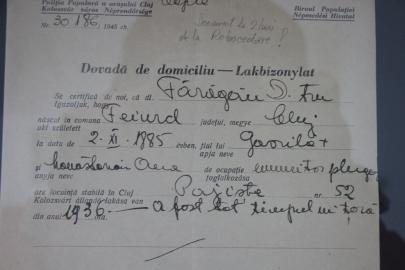 Poliția Populară a orașului Cluj
Kolozsvár város Néprendőrsége
Biroul Populației
Népesedési Hivatal
Nr. 30186, 1945 sz.
Dovadă de domiciliu — Lakbizonylat
Se certifică de noi, că dl
Igazoljak, hogy
născut în comuna Feiurd județul, megye Cluj
aki született
la data de 2. XI. 1885 -ben, fiul lui Gavrilă †
apja neve
și Ana de ocupație
anyja neve foglalkozása
are locuința stabilă în Cluj Pajiște nr. 52
Kolozsvári állandó lakása van
din anul 1936 óta. a fost tot timpul în țară